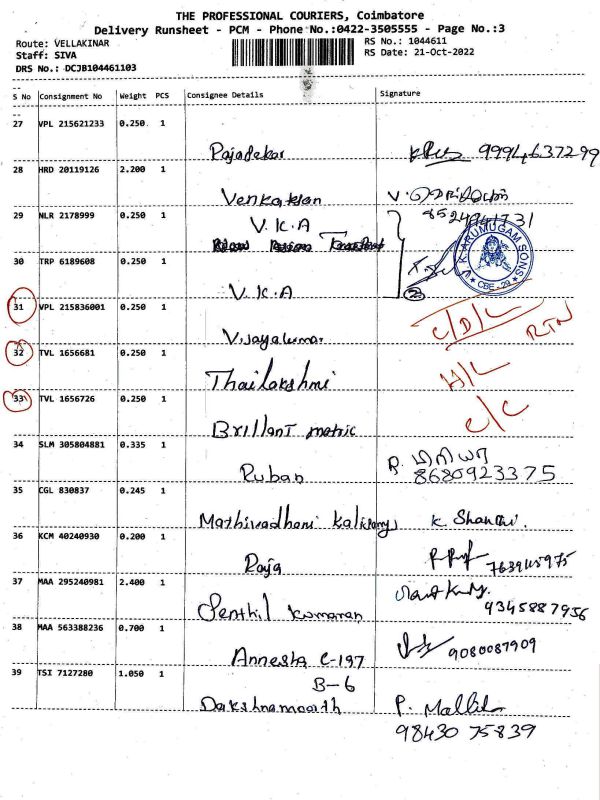 THE PROFESSIONAL COURIERS, Coimbatore
Delivery Runsheet - PCM - Phone No.:0422-3505555 - Page No.:3
Route: VELLAKINAR
RS No.: 1044611
Staff: SIVA
RS Date: 21-Oct-2022
DRS No.: DCJB104461103
S No Consignment No Weight PCS Consignee Details Signature
27 VPL 215621233 0.250 1
Rajasekar 9994637299
28 HRD 20119126 2.200 1
Venkatesan V.
29 NLR 2178999 0.250 1
V.K.A 8524941731
30 TRP 6189608 0.250 1
V.K.A 2
V.K. ARUMUGAM SONS CBE - 29
31 VPL 215836001 0.250 1
Vijayakumar C/D/L RTN
32 TVL 1656681 0.250 1
Thailakshmi H/L
33 TVL 1656726 0.250 1
Brillant metric C/C
34 SLM 305804881 0.335 1
Ruban R.
8680923375
35 CGL 830837 0.245 1
Mathivadhani K. Shanthi.
36 KCM 40240930 0.200 1
Raja
37 MAA 295240981 2.400 1
Senthil Kumaran 9345887956
38 MAA 563388236 0.700 1
Annesha C-197 9080087909
39 TSI 7127280 1.050 1
B-6
Dakshnamoorth P.
98430 75839